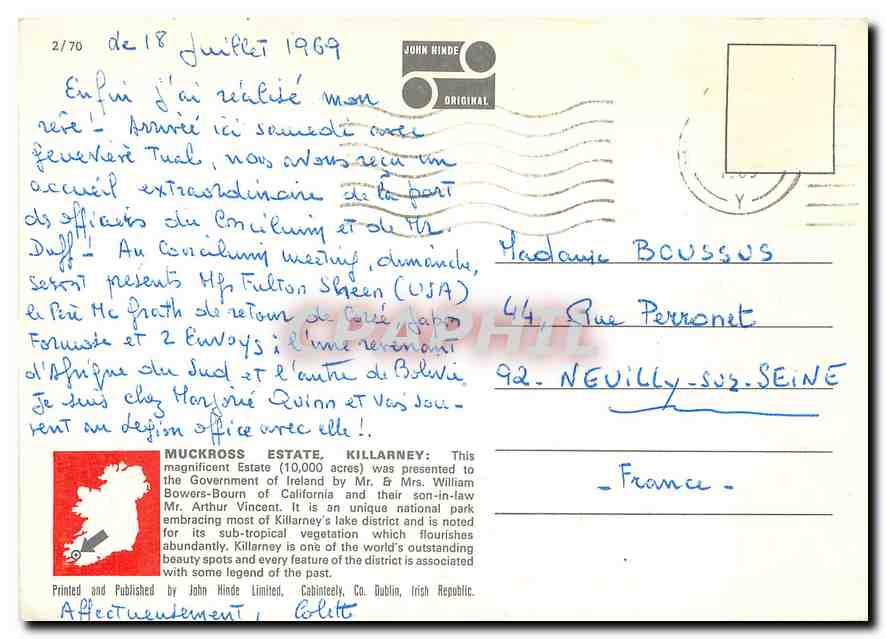 2/70
de 18 Juillet 1969
JOHN HINDE
ORIGINAL
Enfin j'ai réalisé mon
rêve ! Arrivée ici samedi avec
Geneviève Tual, nous avons reçu un
accueil extraordinaire de la part
des officiers du Concilium et de Mr.
Duff ! Au Concilium meeting, dimanche,
seront présents Mgr Fulton Sheen (USA)
le Père Mc Grath de retour de Corée, Japon
Formose et 2 Envoys ; l'une revenant
d'Afrique du Sud et l'autre de Bolivie.
Je suis chez Marjorie Quinn et vais sou-
vent au Legion office avec elle !.
Y
Madame BOUSSUS
44, Rue Perronet
92 - NEUILLY-SUR-SEINE
- France -
CPAPHIL
MUCKROSS ESTATE, KILLARNEY: This
magnificent Estate (10,000 acres) was presented to
the Government of Ireland by Mr. & Mrs. William
Bowers-Bourn of California and their son-in-law
Mr. Arthur Vincent. It is an unique national park
embracing most of Killarney's lake district and is noted
for its sub-tropical vegetation which flourishes
abundantly. Killarney is one of the world's outstanding
beauty spots and every feature of the district is associated
with some legend of the past.
Printed and Published by John Hinde Limited, Cabinteely, Co. Dublin, Irish Republic.
Affectueusement, Colette